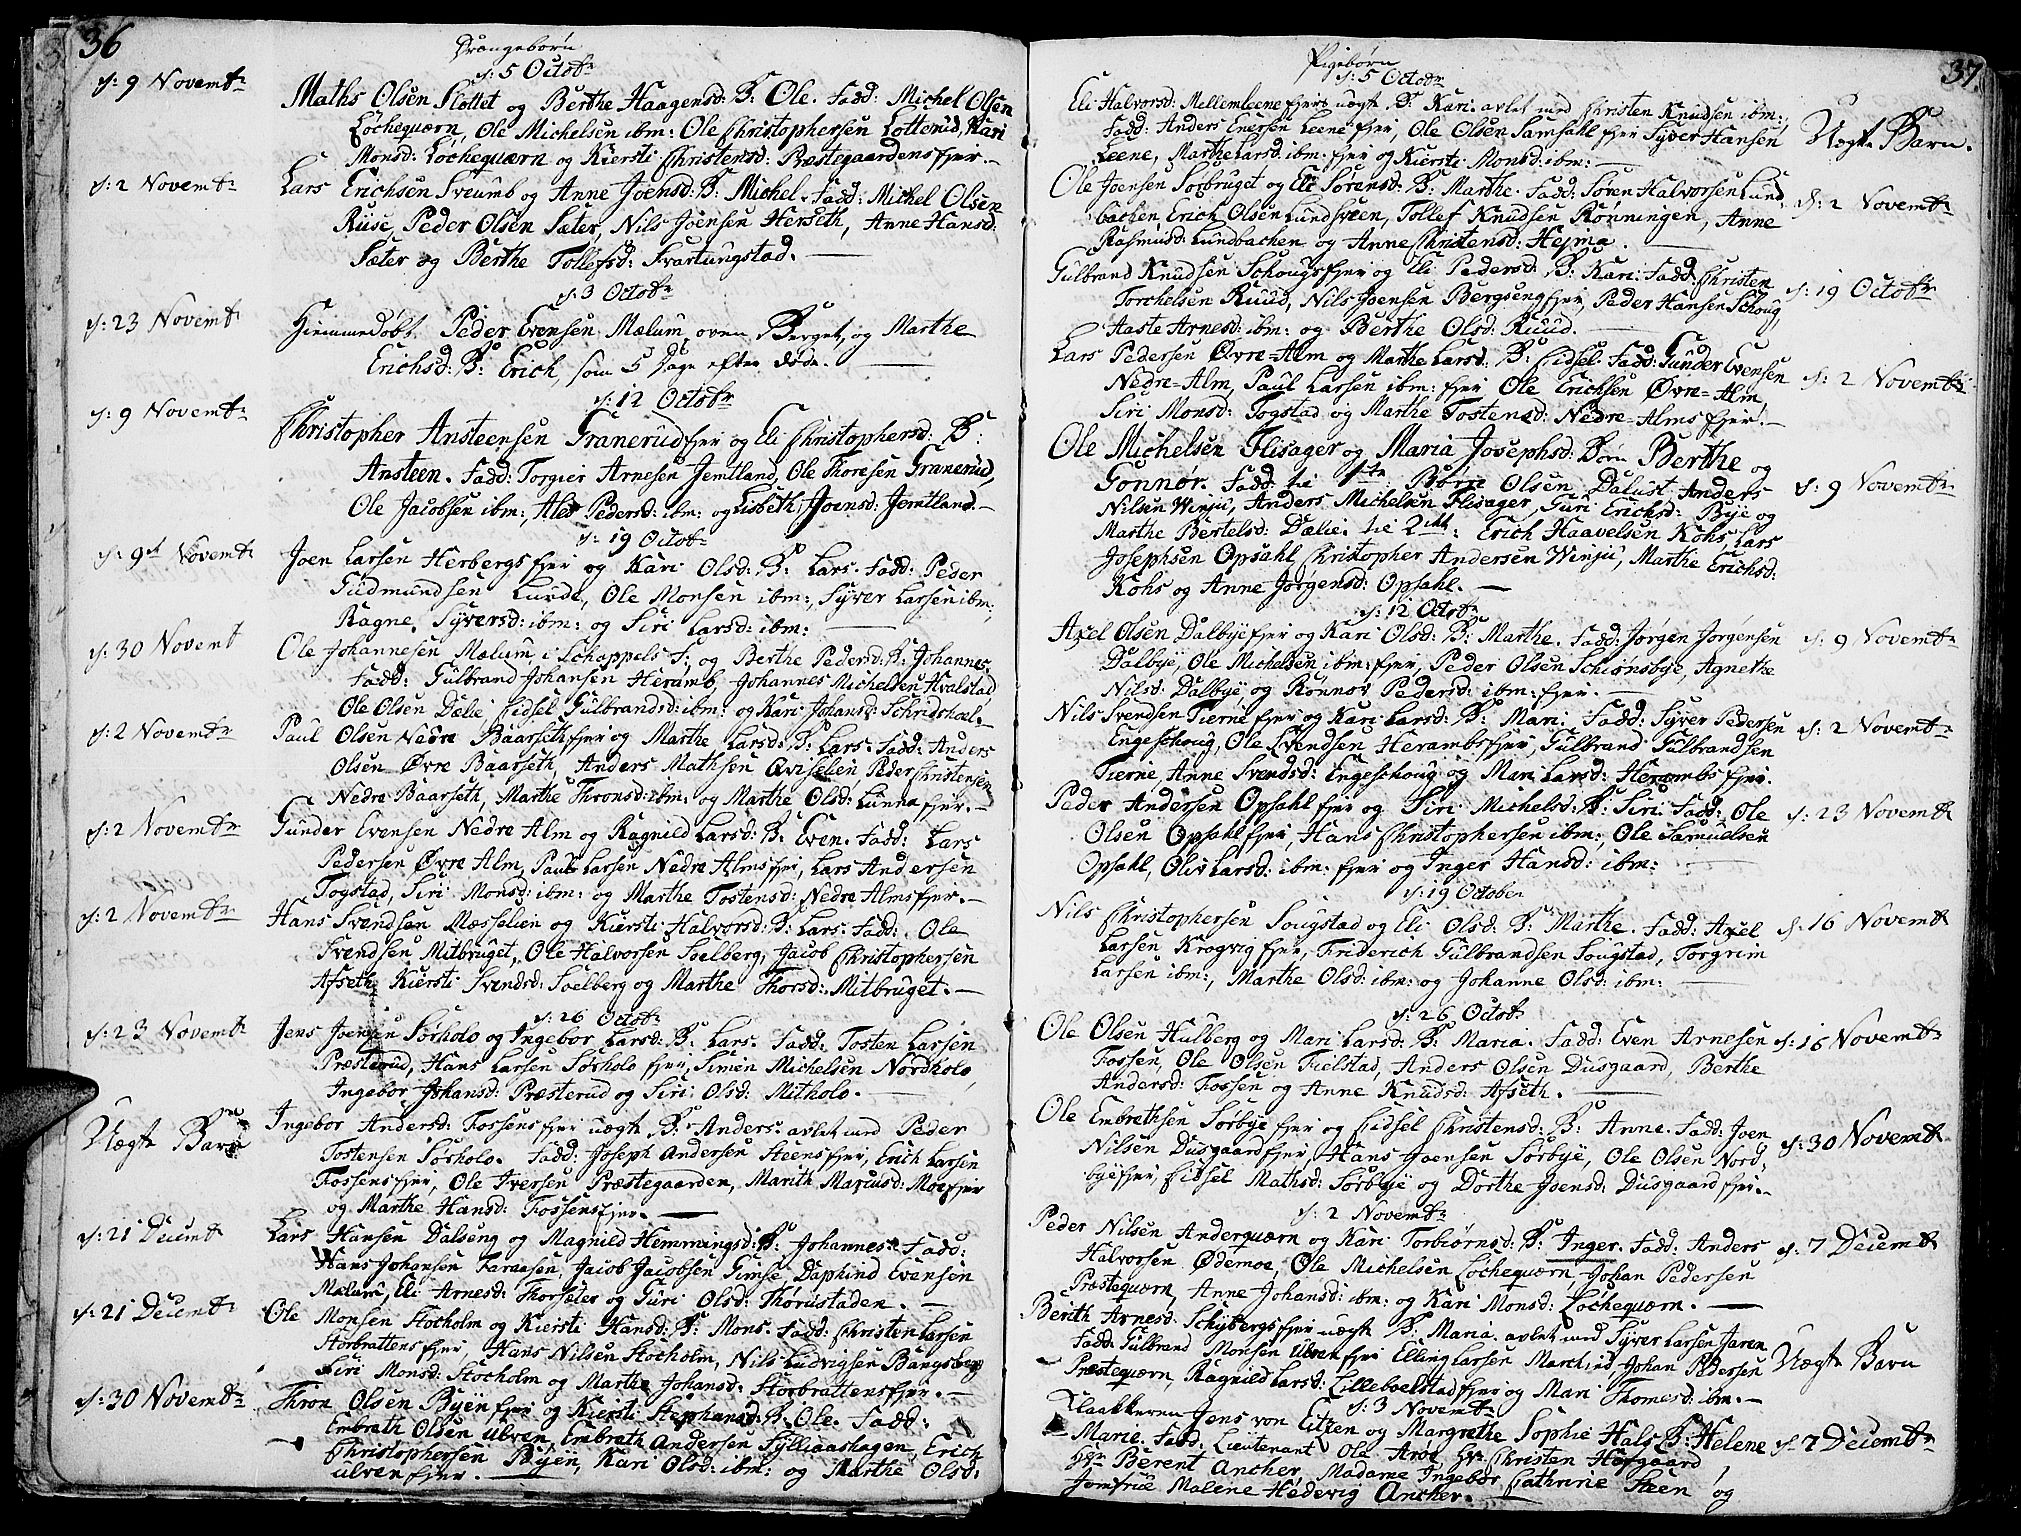 36
Drangebørn
d: 5 Octobr
d: 9 Novembr
Maths Olsen Slottet og Berthe Haagensd: B: Ole. Fadd: Michel Olsen
Løchequærn, Ole Michelsen ibm: Ole Christophersen Lotterud, Kari
Monsd: Løchequærn og Kiersti Christensd: Præstegaardensfjer.
d: 2 Novembr
Lars Erichsen Sveumb og Anne Joensd: B: Michel. Fadd: Michel Olsen
Ruse, Peder Olsen Sæter, Nils Joensen Herseth, Anne Hansd:
Sæter og Berthe Tollefsd: Svartungstad.
d: 3 Octobr
d: 23 Novembr
Hiemmedøbt Peder Evensen Mælum, oven Berget, og Marthe
Erichsd: B: Erich, som 5 Dage efter døde.
d: 12 Octobr
d: 9 Novembr
Christopher Ansteensen Granerudfjer og Eli Christophersd: B:
Ansteen. Fadd: Torgier Arnesen Jemtland, Ole Thoresen Granerud,
Ole Jacobsen ibm:, Aled Pedersd: ibm: og Lisbeth Joensd: Jemtland.
d: 19 Octobr
d: 9d Novembr
Joen Larsen Herbergsfjer og Kari Olsd: B: Lars. Fadd: Peder
Gudmundsen Lunde, Ole Monsen ibm:, Syver Larsen ibm:,
Ragne Syversd: ibm: og Siri Larsd: ibm:
d: 30 Novembr
Ole Johannesen Mælum, i Schappels S: og Berthe Pedersd: B: Johannes
Fadd: Gulbrand Johansen Heramb, Johannes Michelsen Hvalstad
Ole Olsen Dælie, Eidsel Gulbrandsd: ibm: og Kari Johansd: Schridshoel.
d: 2 Novembr
Paul Olsen Nedre Baarsethfjer og Marthe Larsd: B: Lars. Fadd: Anders
Olsen Øvre Baarseth, Anders Mathsen Qviselien Peder Christensen
Nedre Baarseth, Marthe Thronsd: ibm: og Marthe Olsd: Lunnafjer.
d: 2 Novembr
Gunder Evensen Nedre Alm og Ragnild Larsd: B: Even. Fadd: Lars
Pedersen Øvre Alm, Paul Larsen Nedre Almsfjer, Lars Andersen
Togstad, Siri Monsd: ibm: og Marthe Tostensd: Nedre Almsfjer.
d: 2 Novembr
Hans Svendsen Messelien og Kiersti Halvorsd: B: Lars. Fadd: Ole
Svendsen Mitbruget, Ole Halvorsen Soelberg, Jacob Christophersen
Afseth, Kiersti Svendsd: Soelberg og Marthe Thorsd: Mitbruget.
d: 26 Octobr
d: 23 Novembr
Jens Joensen Sørholo og Ingebor Larsd: B: Lars. Fadd: Tosten Larsen
Præsterud, Hans Larsen Sørholo fjer, Simen Michelsen Nordholo,
Ingebor Johansd: Præsterud og Siri Olsd: Mitholo.
Uægte Barn
Ingebor Andersd: Fossensfjer uægte B: Anders avlet med Peder
Tostensen Sørholo. Fadd: Joseph Andersen Steensfjer, Erich Larsen
Fossensfjer, Ole Iversen Præstegaarden, Marith Mariusd: Moefjer
og Marthe Hansd: Fossensfjer.
d: 21 Decembr
Lars Hansen Dalseng og Magnild Hemmingsd: B: Johannes. Fadd:
Hans Johansen Faraasen, Jacob Jacobsen Gimse, Daphind Evensen
Mælum, Eli Arnesd: Thorsæter og Guri Olsd: Thorustaden.
d: 21 Decembr
Ole Monsen Stocholm og Kiersti Hansd: B: Mons. Fadd: Christen Larsen
Storbrattensfjer, Hans Nilsen Stocholm, Nils Ludvigsen Bangsberg
Siri Monsd: Stocholm og Marthe Johansd: Storbrattensfjer.
d: 30 Novembr
Thron Olsen Byenfjer og Kiersti Stephansd: B: Ole. Fadd:
Embrath Olsen Ulven, Embrath Andersen Sylliaashagen, Erich
Christophersen Byen, Kari Olsd: ibm: og Marthe Olsd:
Ulvenfjer.
37.
Pigebørn
d: 5 Octobr
Eli Halvorsd: Mellemleenefjers uægte B: Kari. avlet med Christen Knudsen ibm:,
Fadd: Anders Enersen Leenefjer, Ole Olsen Samsahlfjer Syver Hansen
Leene, Marthe Larsd: ibm: fjer og Kiersti Monsd: ibm:
Uægte Barn.
Ole Joensen Sorbruget og Eli Sørensd: B: Marthe. Fadd: Søren Halvorsen Lund-
bachen Erich Olsen Lundsveen, Tollef Knudsen Rønningen, Anne
Rasmusd: Lundbachen og Anne Christensd: Hejma.
d: 2 Novembr
Gulbrand Knudsen Schougsfjer og Eli Pedersd: B: Kari. Fadd: Christen
Torchelsen Ruud, Nils Joensen Bergsengfjer, Peder Hansen Schoug,
Aaste Arnesd: ibm: og Berthe Olsd: Ruud.
d: 19 Octobr
Lars Pedersen Øvre-Alm og Marthe Larsd: B: Eidsel. Fadd: Gunder Evensen
Nedre-Alm, Paul Larsen ibm: fjer Ole Erichsen Øvre-Alm,
Siri Monsd: Togstad og Marthe Tostensd: Nedre-Almsfjer.
d: 2 Novembr
Ole Michelsen Flisager og Maria Josephsd: Børn Berthe og
Gonnør. Fadd: til 1ste Børje Olsen Dalust, Anders
Nilsen Winju, Anders Michelsen Flisager, Guri Erichsd: Bye og
Marthe Bertelsd: Dælie: til 2det: Erich Haavelsen Kohs, Lars
Josephsen Opsahl, Christopher Andersen Winju, Marthe Erichsd:
Kohs og Anne Jørgensd: Opsahl.
d: 9 Novembr
d: 12 Octobr
Axel Olsen Dalbyefjer og Kari Olsd: B: Marthe. Fadd: Jørgen Jørgensen
Dalbye, Ole Michelsen ibm: fjer, Peder Olsen Schiønsbye, Agnethe
Nilsd: Dalbye og Rønnov Pedersd: ibm: fjer.
d: 9 Novembr
Nils Svendsen Tiernefjer og Kari Larsd: B: Mari. Fadd: Syver Pedersen
Engeschoug, Ole Svendsen Herambsfjer, Gulbrand Gulbrandsen
Tierne, Anne Svendsd: Engeschoug og Mari Larsd: Herambsfjer.
d: 2 Novembr
Peder Andersen Opsahlfjer og Siri Michelsd: B: Siri. Fadd: Ole
Olsen Opsahlfjer, Hans Christophersen ibm:, Ole Samuelsen
Opsahl, Oliv Larsd: ibm: fjer og Inger Hansd: ibm:
d: 23 Novembr
d: 19 October
Nils Christophersen Sougstad og Eli Olsd: B: Marthe. Fadd: Axel
Larsen Krogvigfjer, Friderich Gulbrandsen Sougstad, Torgrim
Larsen ibm:, Marthe Olsd: ibm: og Johanne Olsd: ibm:
d: 16 Novembr
d: 26 Octobr
Ole Olsen Hulberg og Mari Larsd: B: Maria. Fadd: Even Arnesen
Fossen, Ole Olsen Fielstad, Anders Olsen Dusgaard, Berthe
Andersd: Fossen og Anne Knudsd: Afseth.
d: 16 Novembr
Ole Embrethsen Sørbyefjer og Eidsel Christensd: B: Anne. Fadd: Joen
Nilsen Dusgaardfjer, Hans Joensen Sørbye, Ole Olsen Nord-
byefjer, Eidsel Mathsd: Sørbye og Dorthe Joensd: Dusgaardfjer.
d: 30 Novembr
d: 2 Novembr
Peder Nilsen Anderquærn og Kari Torbiørnsd: B: Inger. Fadd: Anders
Halvorsen Ødemoe, Ole Michelsen Løchequærn, Johan Pedersen
Præstequærn, Anne Johansd: ibm: og Kari Monsd: Løchequærn.
d: 7 Decembr
Berith Arnesd: Schybergsfjer uægte B: Maria. avlet med Syver Larsen Jaren
Fadd: Gulbrand Monsen Ulvenfjer Elling Larsen Marchlud, Johan Pedersen
Præstequærn, Ragnild Larsd: Lilleboelstadfjer og Mari Thomesd: ibm.
Uægte Barn
d: 3 Novembr
Klaakkeren Jens von Eitzen og Margrethe Sophie Hals B: Helene
Marie. Fadd: Lieutenant Ole Aroe Hr: Christen Hofgaard,
Hr: Berent Ancher, Madame Ingebor Cathrine Steen og
Jomfrue Malene Hedevig Ancher.
d: 7 Decembr